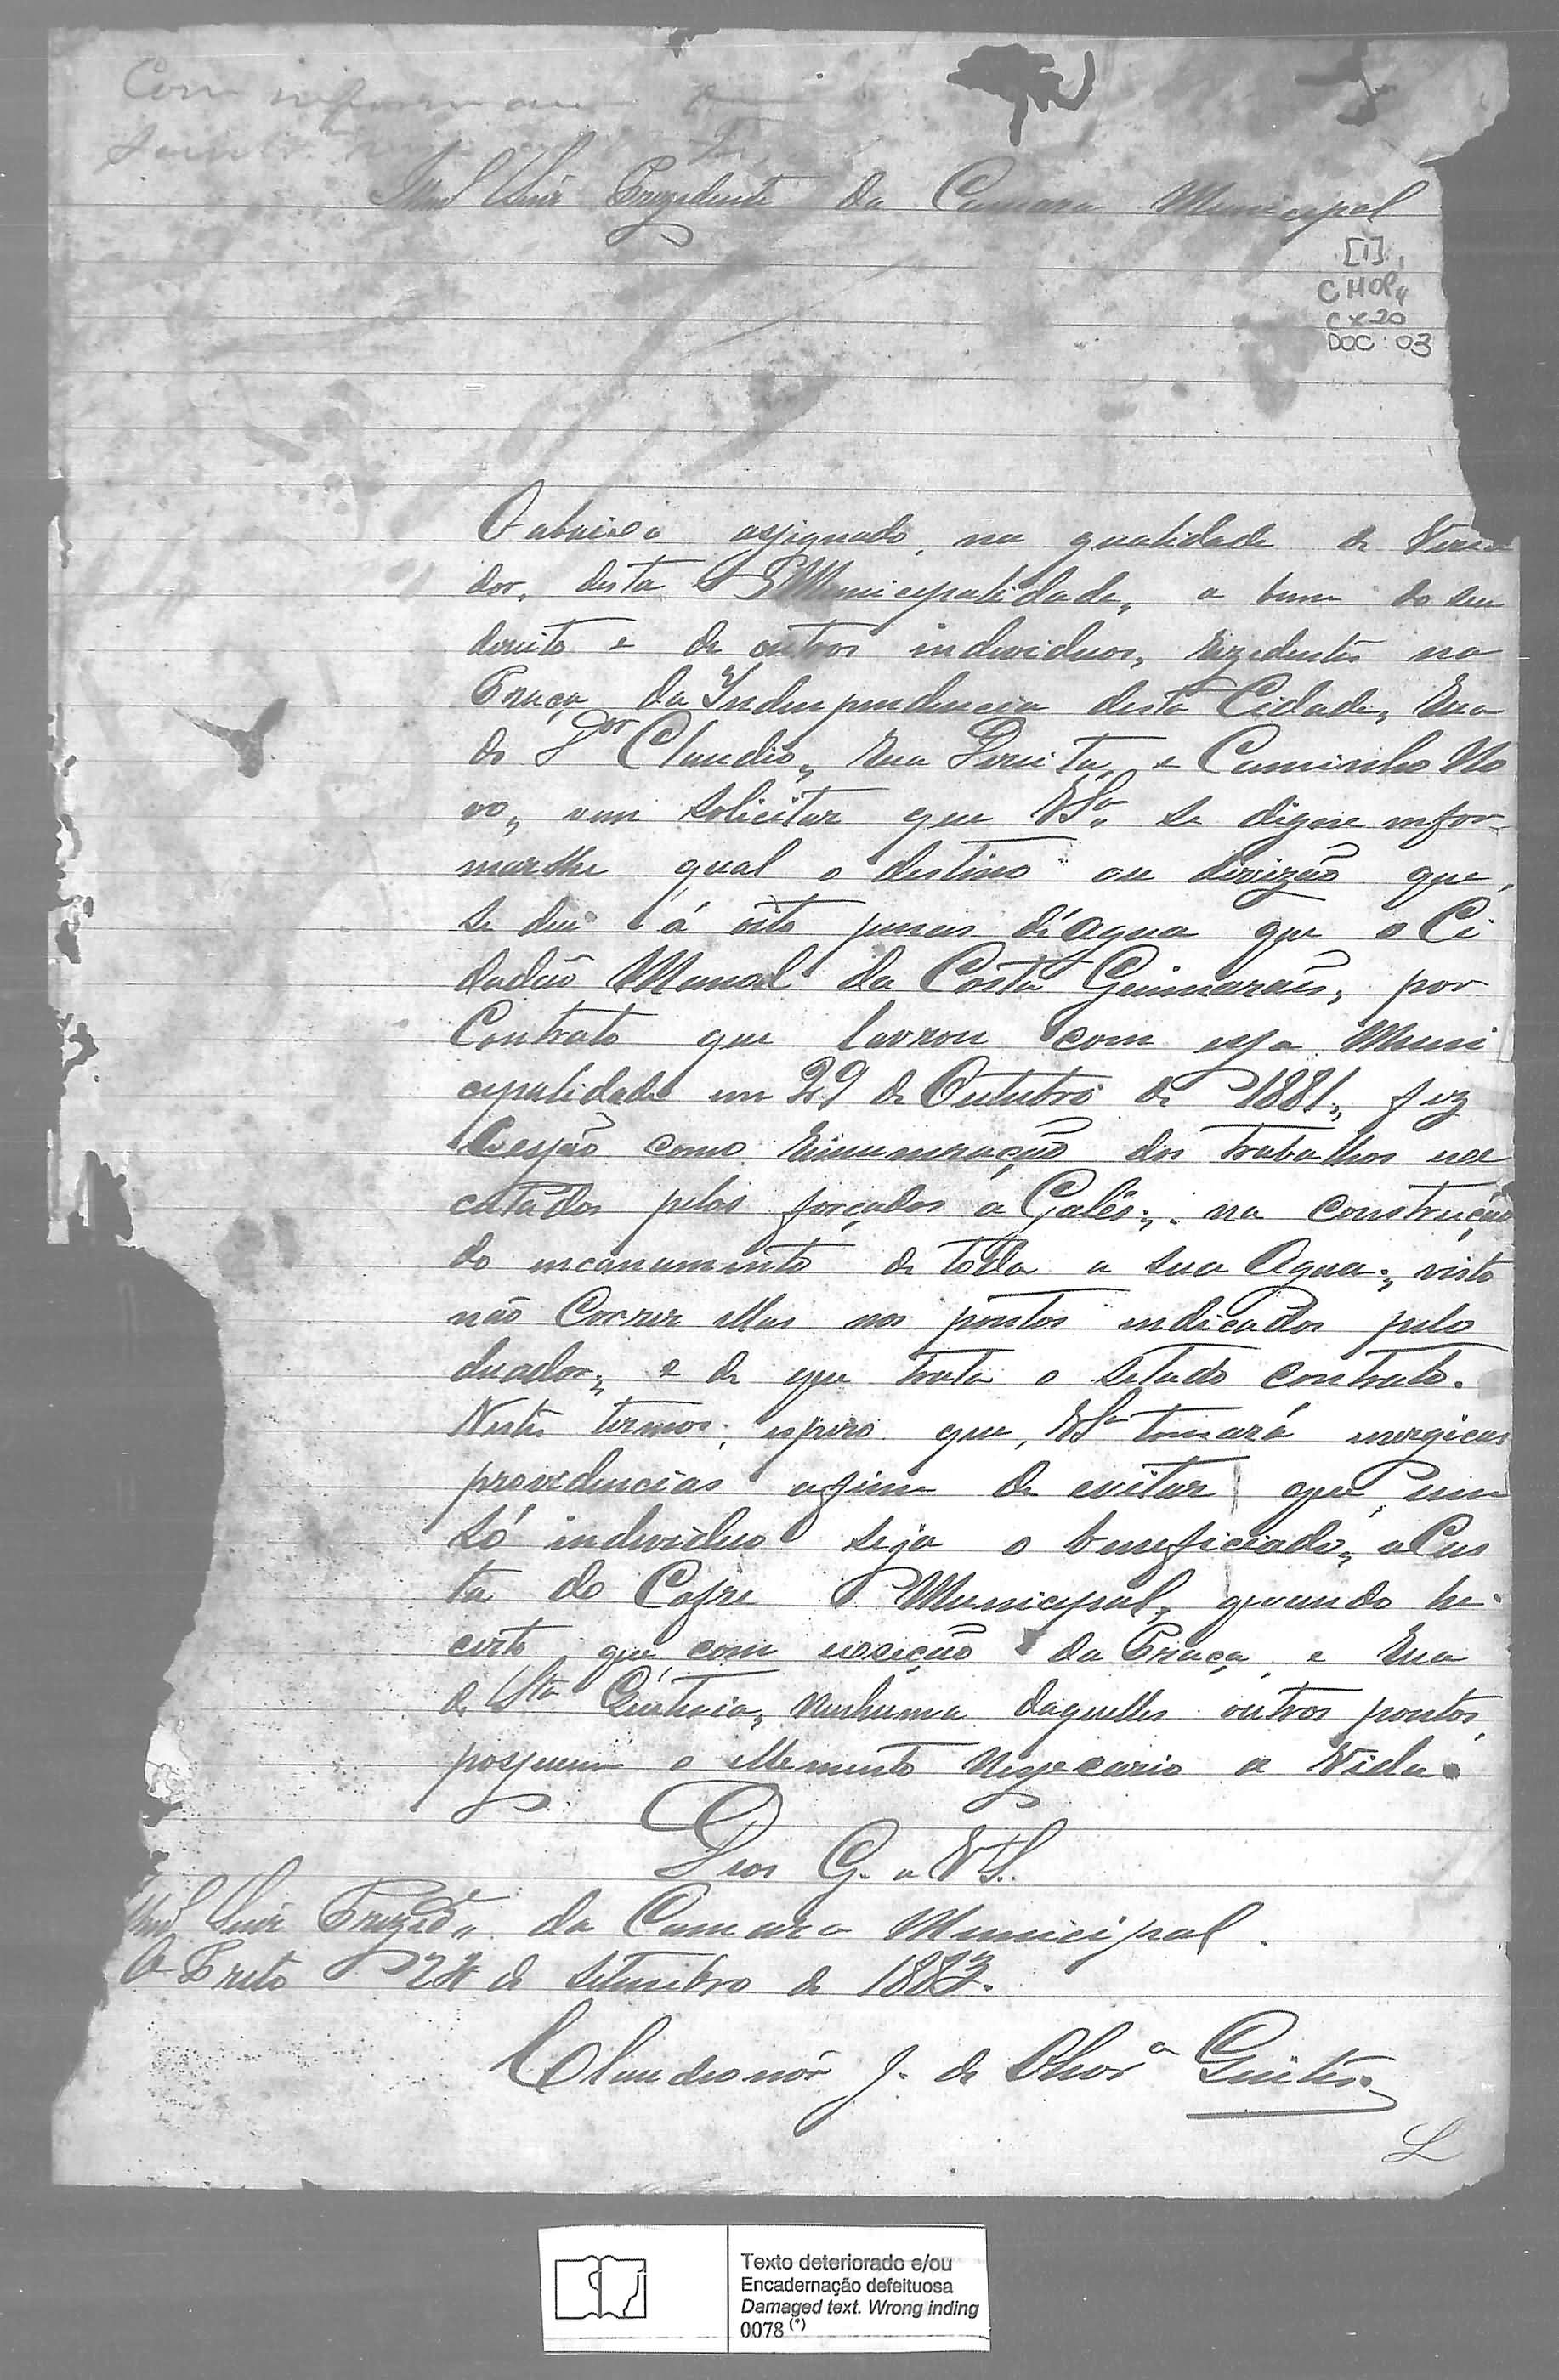 Com informação
Illmo Snir Prezidente da Camara Municipal
[1]
CMOP
CX 20
DOC: 03
O abaixo assignado, na qualidade de Verea
dor, desta Municipalidade, a bem do seu
direito e de outros individuos, rezedentes na
Praça da Independencia desta Cidade, Rua
do Dor Claudio, Rua Direita, e Caminho No
vo, vem solicitar que VSa se digne infor-
marlhe qual o destino ou divizão que,
se deu á oito penas d'agua que o Ci
dadão Manoel da Costa Guimarães, por
Contrato que lavrou com essa Muni
cipalidade em 29 de Outubro de 1881, fez
Cessão como rimuneração dos trabalhos exe
cutados pelos forçados a Galés, na construção
do encanamento de toda a sua Agua, visto
não Correr ellas nos pontos indicados pelo
doador, e de que trata o setado contrato.
Nestes termos, espero que, VSa tomará energicas
providencias afim de evitar que um
só individuo seja o beneficiado, a Cus
ta do Cofre Municipal, quando he
certo que com exseção da Praça, e Rua
de Sta Quiteria, nenhuma daquelles outros pontos,
possuem o ellemento nessecario a Vida.
Deos G. a VS.
Illmo Snir Prezide da Camara Municipal.
O Preto 24 de Setembro de 1883.
Claudionôr J. de Olivra
L
Texto deteriorado e/ou
Encadernação defeituosa
Damaged text. Wrong inding
0078 (*)